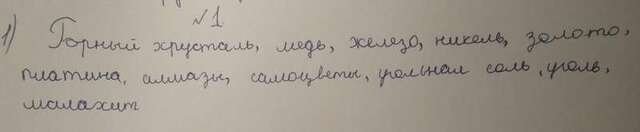 №1
1) Горный хрусталь, медь, железо, никель, золото,
платина, алмазы, самоцветы, угольная соль, уголь,
малахит